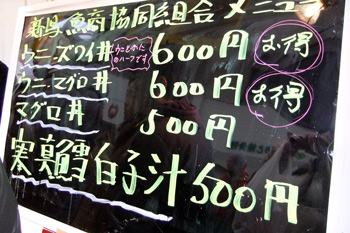 魚商協同組合メニュー
ウニ、ズワイ丼 ウニとかにのハーフです 600円 お得
ウニ、マグロ丼 600円 お得
マグロ丼 500円
寒真鱈白子汁 500円